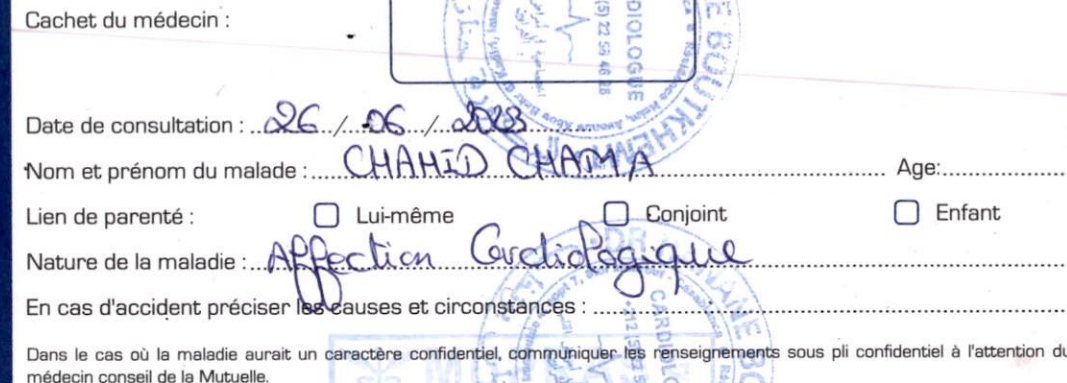 Cachet du médecin :
CARDIOLOGUE
Date de consultation : 26 / 06 / 2023
Nom et prénom du malade : CHAHID CHAMA Age:
Lien de parenté : Lui-même Conjoint Enfant
Nature de la maladie : Affection Cardiologique
En cas d'accident préciser les causes et circonstances :
Dans le cas où la maladie aurait un caractère confidentiel, communiquer les renseignements sous pli confidentiel à l'attention du
médecin conseil de la Mutuelle.